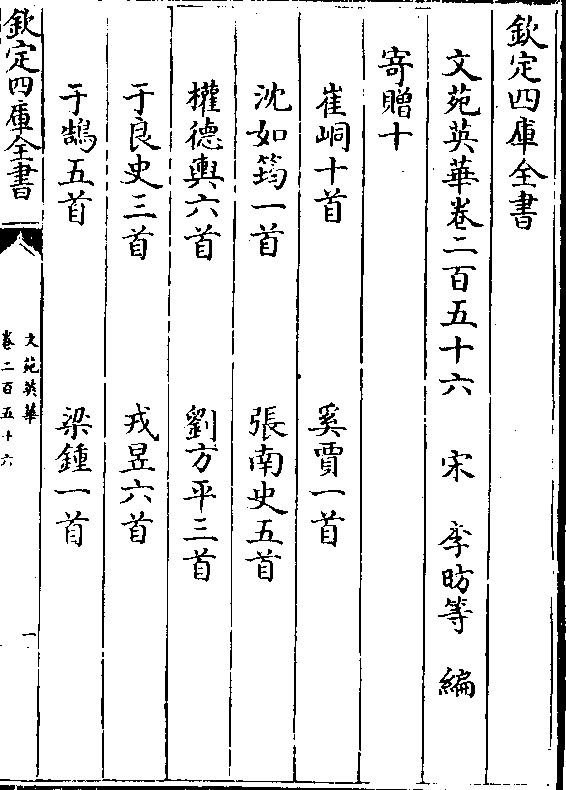 欽定四庫全書
文苑英華卷二百五十六 宋 李昉等 編
寄贈十
崔峒十首 奚賈一首
沈如筠一首 張南史五首
權德輿六首 劉方平三首
于良史三首 戎昱六首
于鵠五首 梁鍾一首
欽定四庫全書
文苑英華
卷二百五十六
一